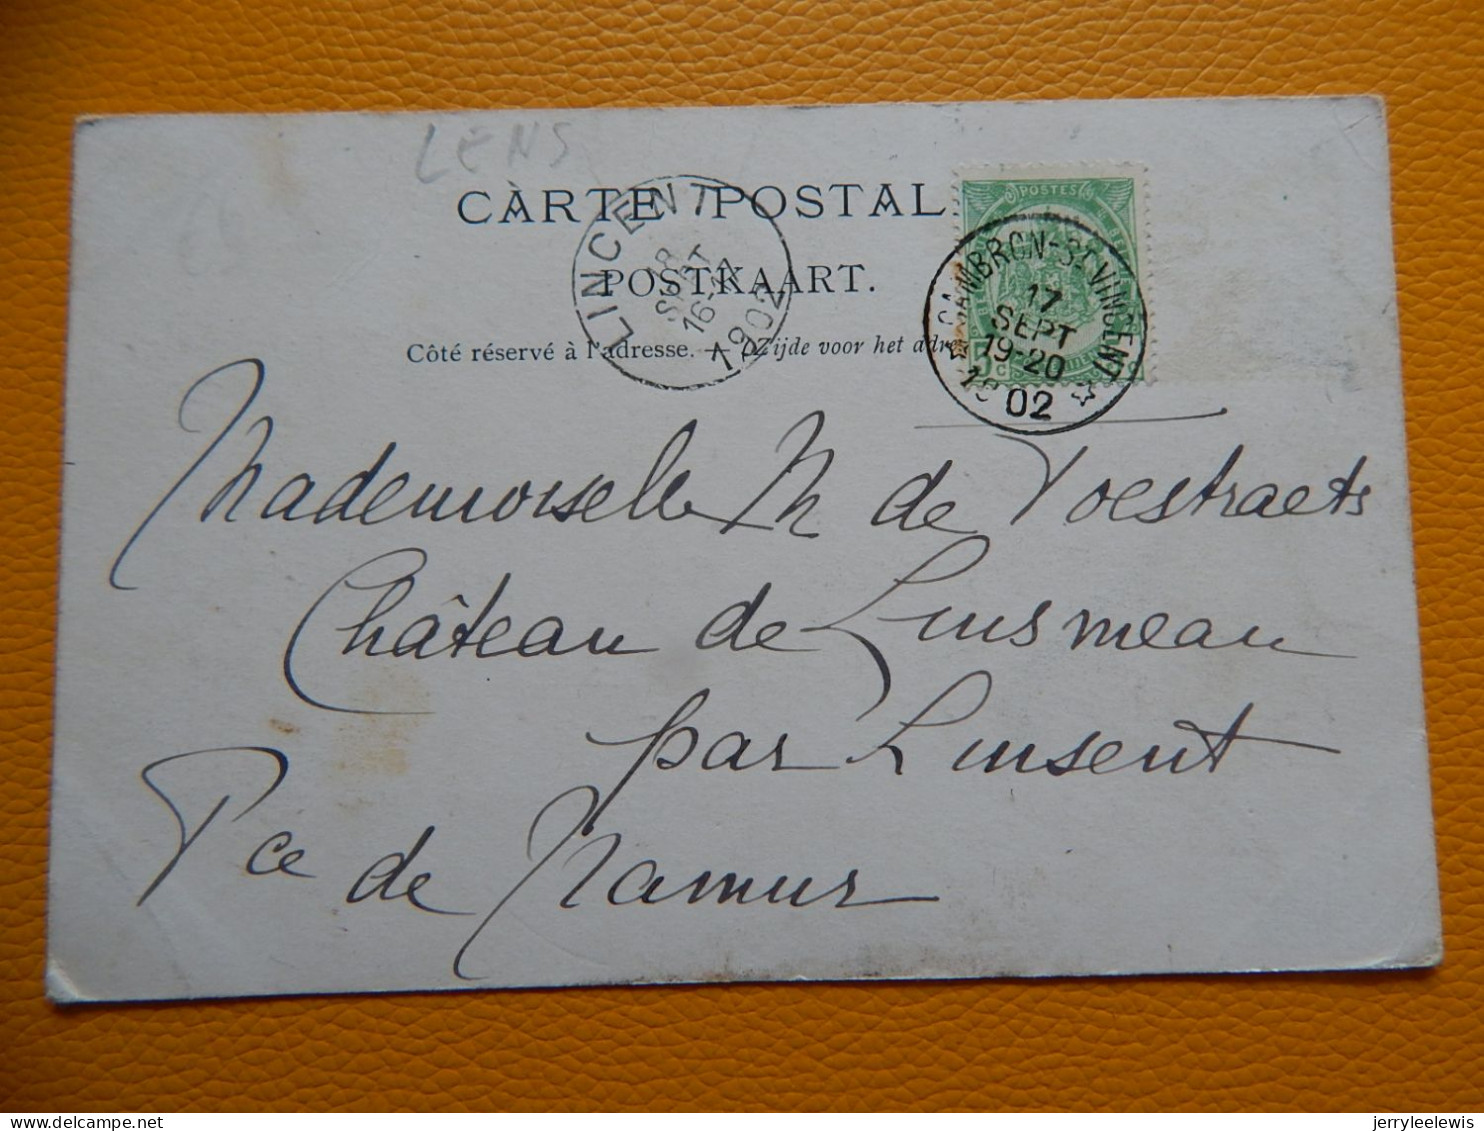 LENS
CARTE POSTAL
POSTKAART.
Côté réservé à l'adresse. — Zijde voor het adres
LINCENT
18
SEPT
16-17
1902
POSTES
5 C
CAMBRON-ST VINCENT
17
SEPT
19-20
1902
Mademoiselle M de Toestraets
Château de Linsmeau
par Linsent
Pce de Namur
jerryleelewis